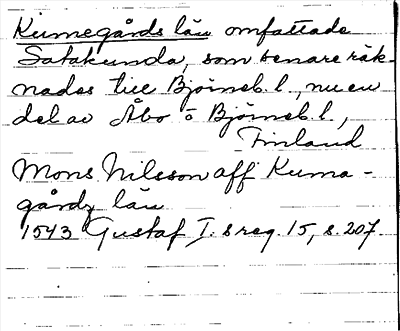 Kumegårds län omfattade
Satakunda, som senare räk-
nades till Björneb. l., nu en
del av Åbo o Björneb. l.,
Finland
Mons Nilsson aff Kuma-
gårdz län
1543 Gustaf I. s reg. 15, s. 207.